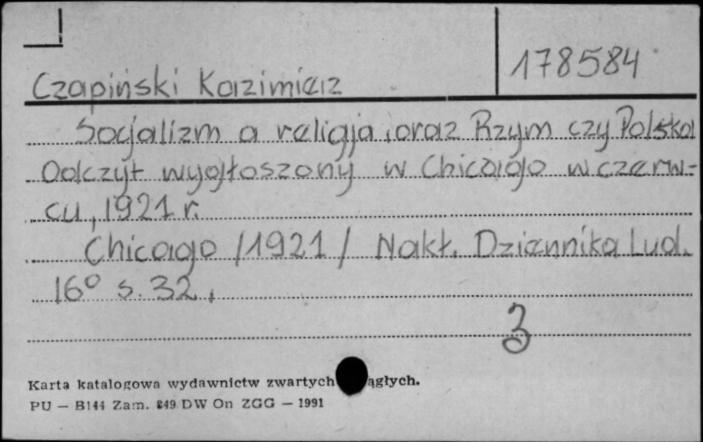 178584
Czapiński Kazimierz
Socjalizm a religja oraz Rzym czy Polska
Odczyt wygłoszony w Chicago w czerw-
cu, 1921 r.
Chicago /1921/ Nakł. Dziennika Lud.
16° s. 32.
3
Karta katalogowa wydawnictw zwartych ągłych.
PU — B144 Zam. 849 DW On ZGG — 1991